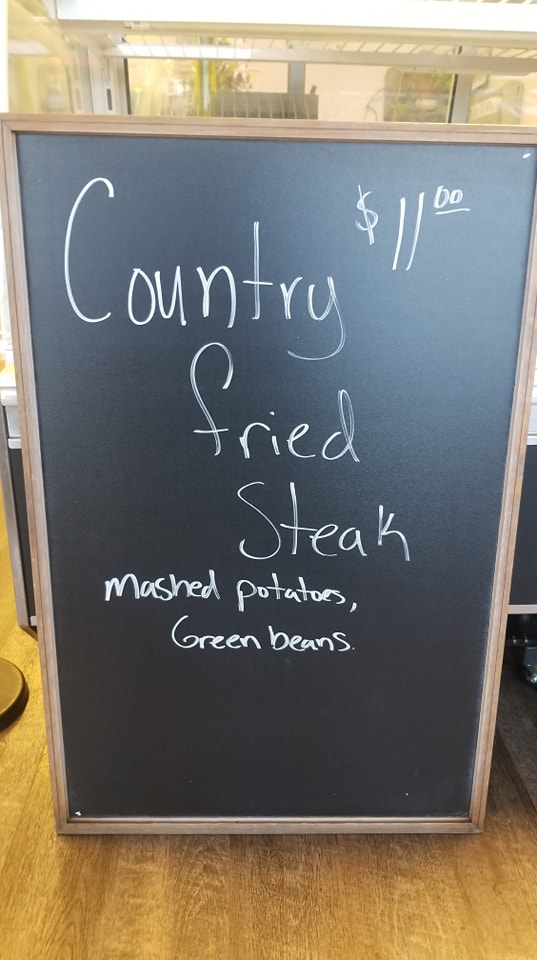 Country $11.00
fried
Steak
mashed potatoes,
Green beans.